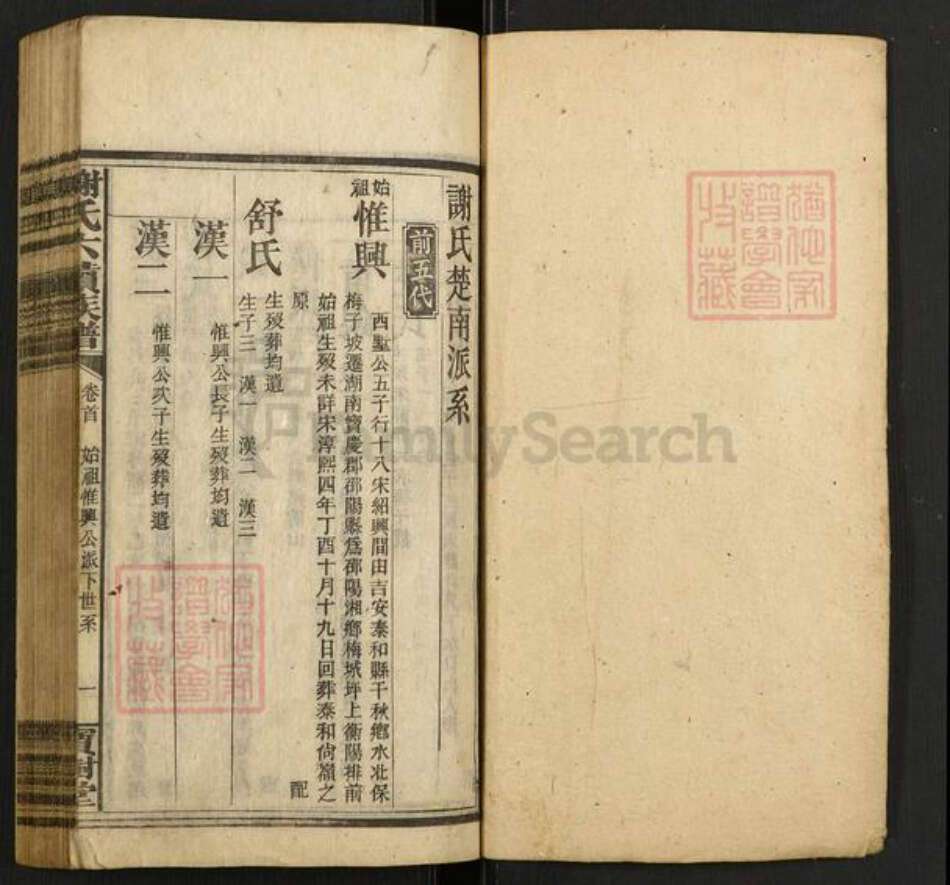 謝氏楚南派系
前五代
始祖 惟興
西墅公五子行十八宋紹興間由吉安泰和縣千秋鄉水北保
梅子坡遷湖南寶慶郡邵陽縣為邵陽湘鄉梅城坪上衡陽排前
始祖生歿未詳宋淳熙四年丁酉十月十九日回葬泰和尙嶺之
原 配
舒氏
生歿葬均遺
生子三 漢一 漢二 漢三
漢一
惟興公長子生歿葬均遺
漢二
惟興公次子生歿葬均遺
謝氏六續族譜
卷首
始祖惟興公派下世系
一
寶樹堂
譜學會
收藏
FamilySearch